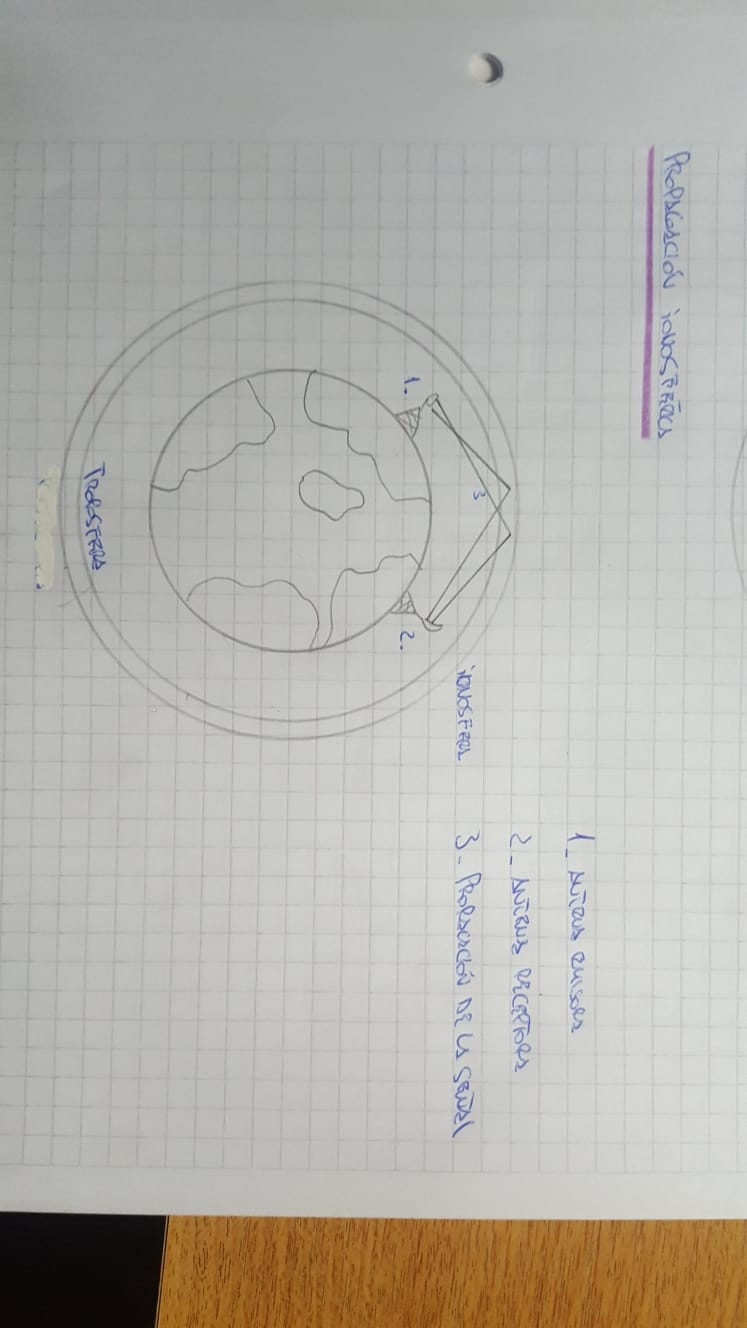 PROPAGACIÓN IONOSFÉRICA
1.
3
2.
IONOSFERA
TROPOSFERA
1- ANTENA EMISORA
2- ANTENA RECEPTORA
3- PROPAGACIÓN DE LA SEÑAL